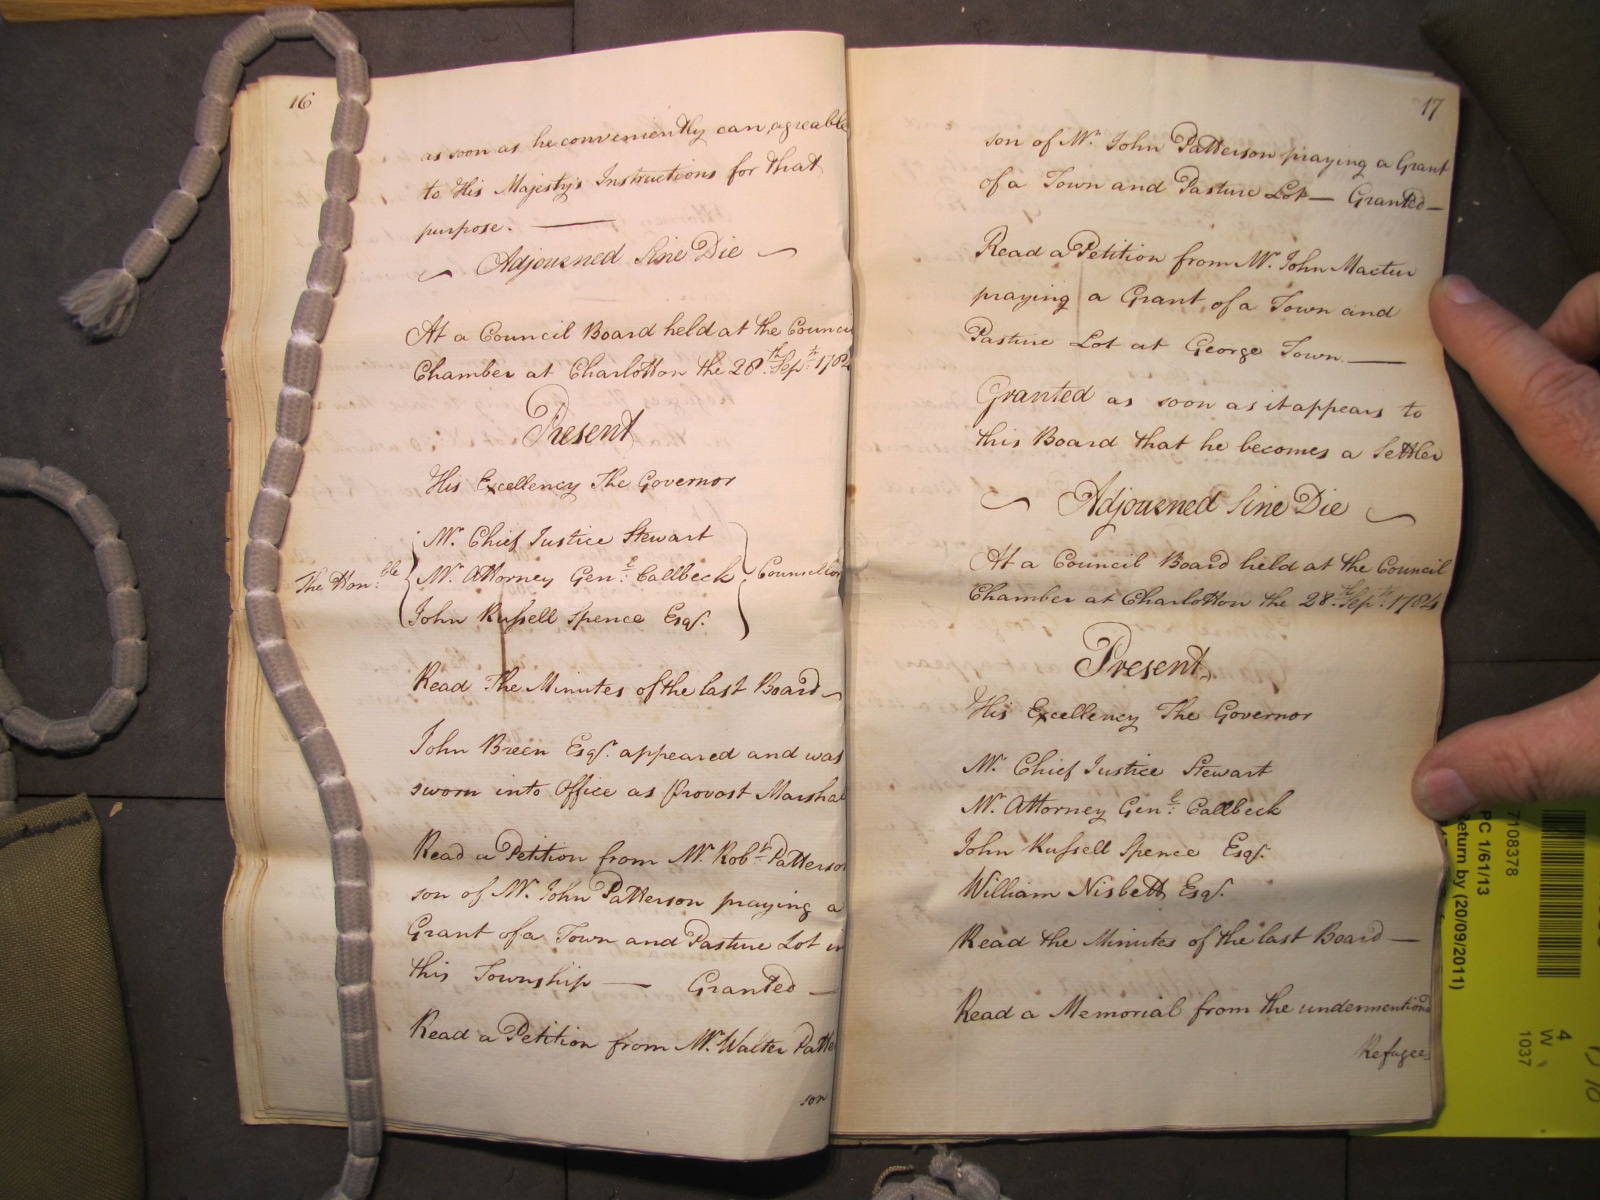 16
as soon as he conveniently can, agreable
to His Majesty's Instructions for that
purpose. —
Adjourned Sine Die
At a Council Board held at the Counci
Chamber at Charlotton the 28th Sepr 1784
Present
His Excellency The Governor
Mr Chief Justice Stewart
The Honble Mr Attorney Genl Callbeck Counsellor
John Russell Spence Esqr
Read The Minutes of the last Board
John Breen Esqr appeared and was
sworn into Office as Provost Marshal
Read a Petition from Mr Robt Patterson
son of Mr John Patterson praying a
Grant of a Town and Pasture Lot in
this Township — Granted —
Read a Petition from Mr Walter Patte
son
17
son of Mr John Patterson praying a Grant
of a Town and Pasture Lot — Granted —
Read a Petition from Mr John
praying a Grant of a Town and
Pasture Lot at George Town —
Granted as soon as it appears to
this Board that he becomes a Settler
Adjourned Sine Die
At a Council Board held at the Council
Chamber at Charlotton the 28th Sepr 1784
Present
His Excellency The Governor
Mr Chief Justice Stewart
Mr Attorney Genl Callbeck
John Russell Spence Esqr
William Nisbett Esqr
Read the Minutes of the last Board —
Read a Memorial from the undermention'd
Refugees
7108378
PC 1/61/13
Return by (20/09/2011)
4
W
1037